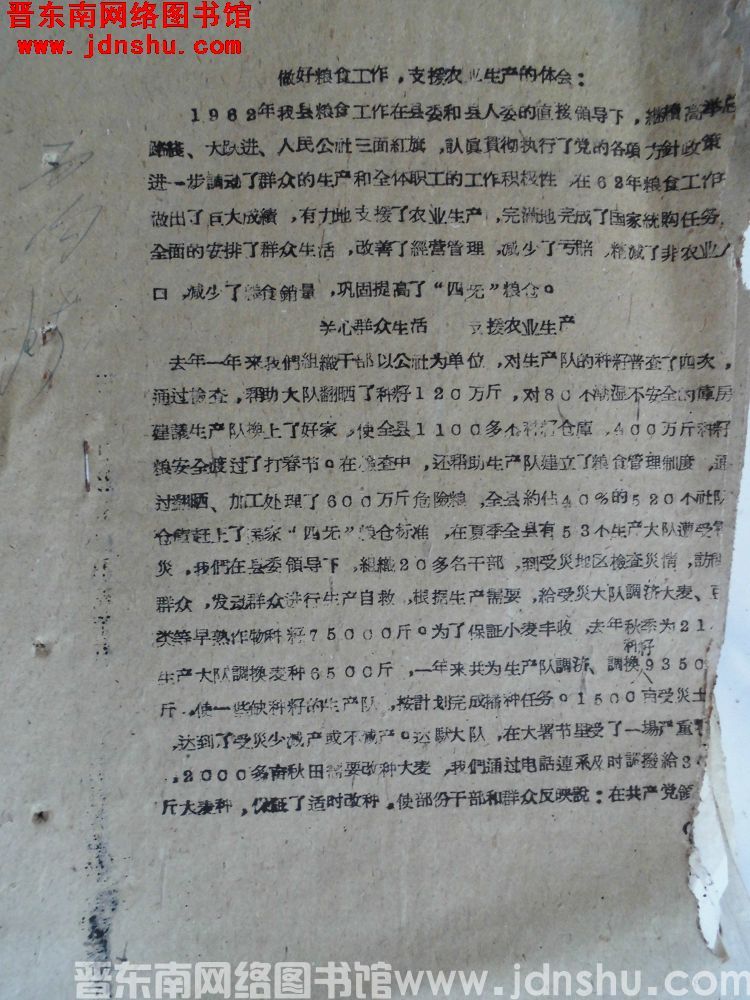 晋东南网络图书馆
www.jdnshu.com
做好粮食工作，支援农业生产的体会：
1962年我县粮食工作在县委和县人委的直接領导下，継續高举总
路綫、大跃进、人民公社三面紅旗，認眞貫彻执行了党的各項方針政策
进一步調动了群众的生产和全体职工的工作积极性，在62年粮食工作
做出了巨大成績，有力地支援了农业生产，完滿地完成了国家統购任务，
全面的安排了群众生活，改善了經营管理，减少了亏賠，精减了非农业人
口，减少了粮食銷量，巩固提高了“四无”粮仓。
关心群众生活 支援农业生产
去年一年来我們組織干部以公社为单位，对生产队的种籽普查了四次，
通过檢查，帮助大队翻晒了种籽120万斤，对80个潮湿不安全的庫房
建議生产队换上了好家，使全县1100多个种籽仓庫，400万斤种籽
粮安全渡过了打春节。在檢查中，还帮助生产队建立了粮食管理制度，通
过翻晒、加工处理了600万斤危險粮，全县約佔40%的520个社队
仓庫赶上了国家“四无”粮仓标准，在夏季全县有53个生产大队遭受
災，我們在县委領导下，組織20多名干部，到受災地区檢查災情，訪
群众，发动群众进行生产自救，根据生产需要，給受災大队調济大麦、豆
类等早熟作物种籽75000斤。为了保証小麦丰收，去年秋季为21
种籽
生产大队調換麦种6500斤，一年来共为生产队調济、調換9350
斤，使一些缺种籽的生产队，按計划完成播种任务91500亩受災土
，达到了受災少减产或不减产。达驮大队，在大署节里受了一場严重
，2000多亩秋田需要改种大麦，我們通过电話連系及时調撥給3
斤大麦种，保証了适时改种。使部份干部和群众反映說：在共产党領
晋东南网络图书馆www.jdnshu.com